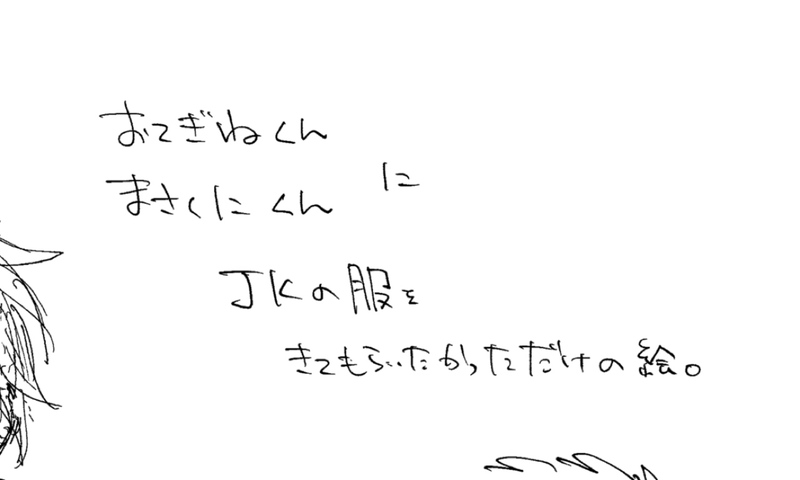 おてぎねくん
まさくにくん に
JKの服を
きてもらいたかっただけの絵。